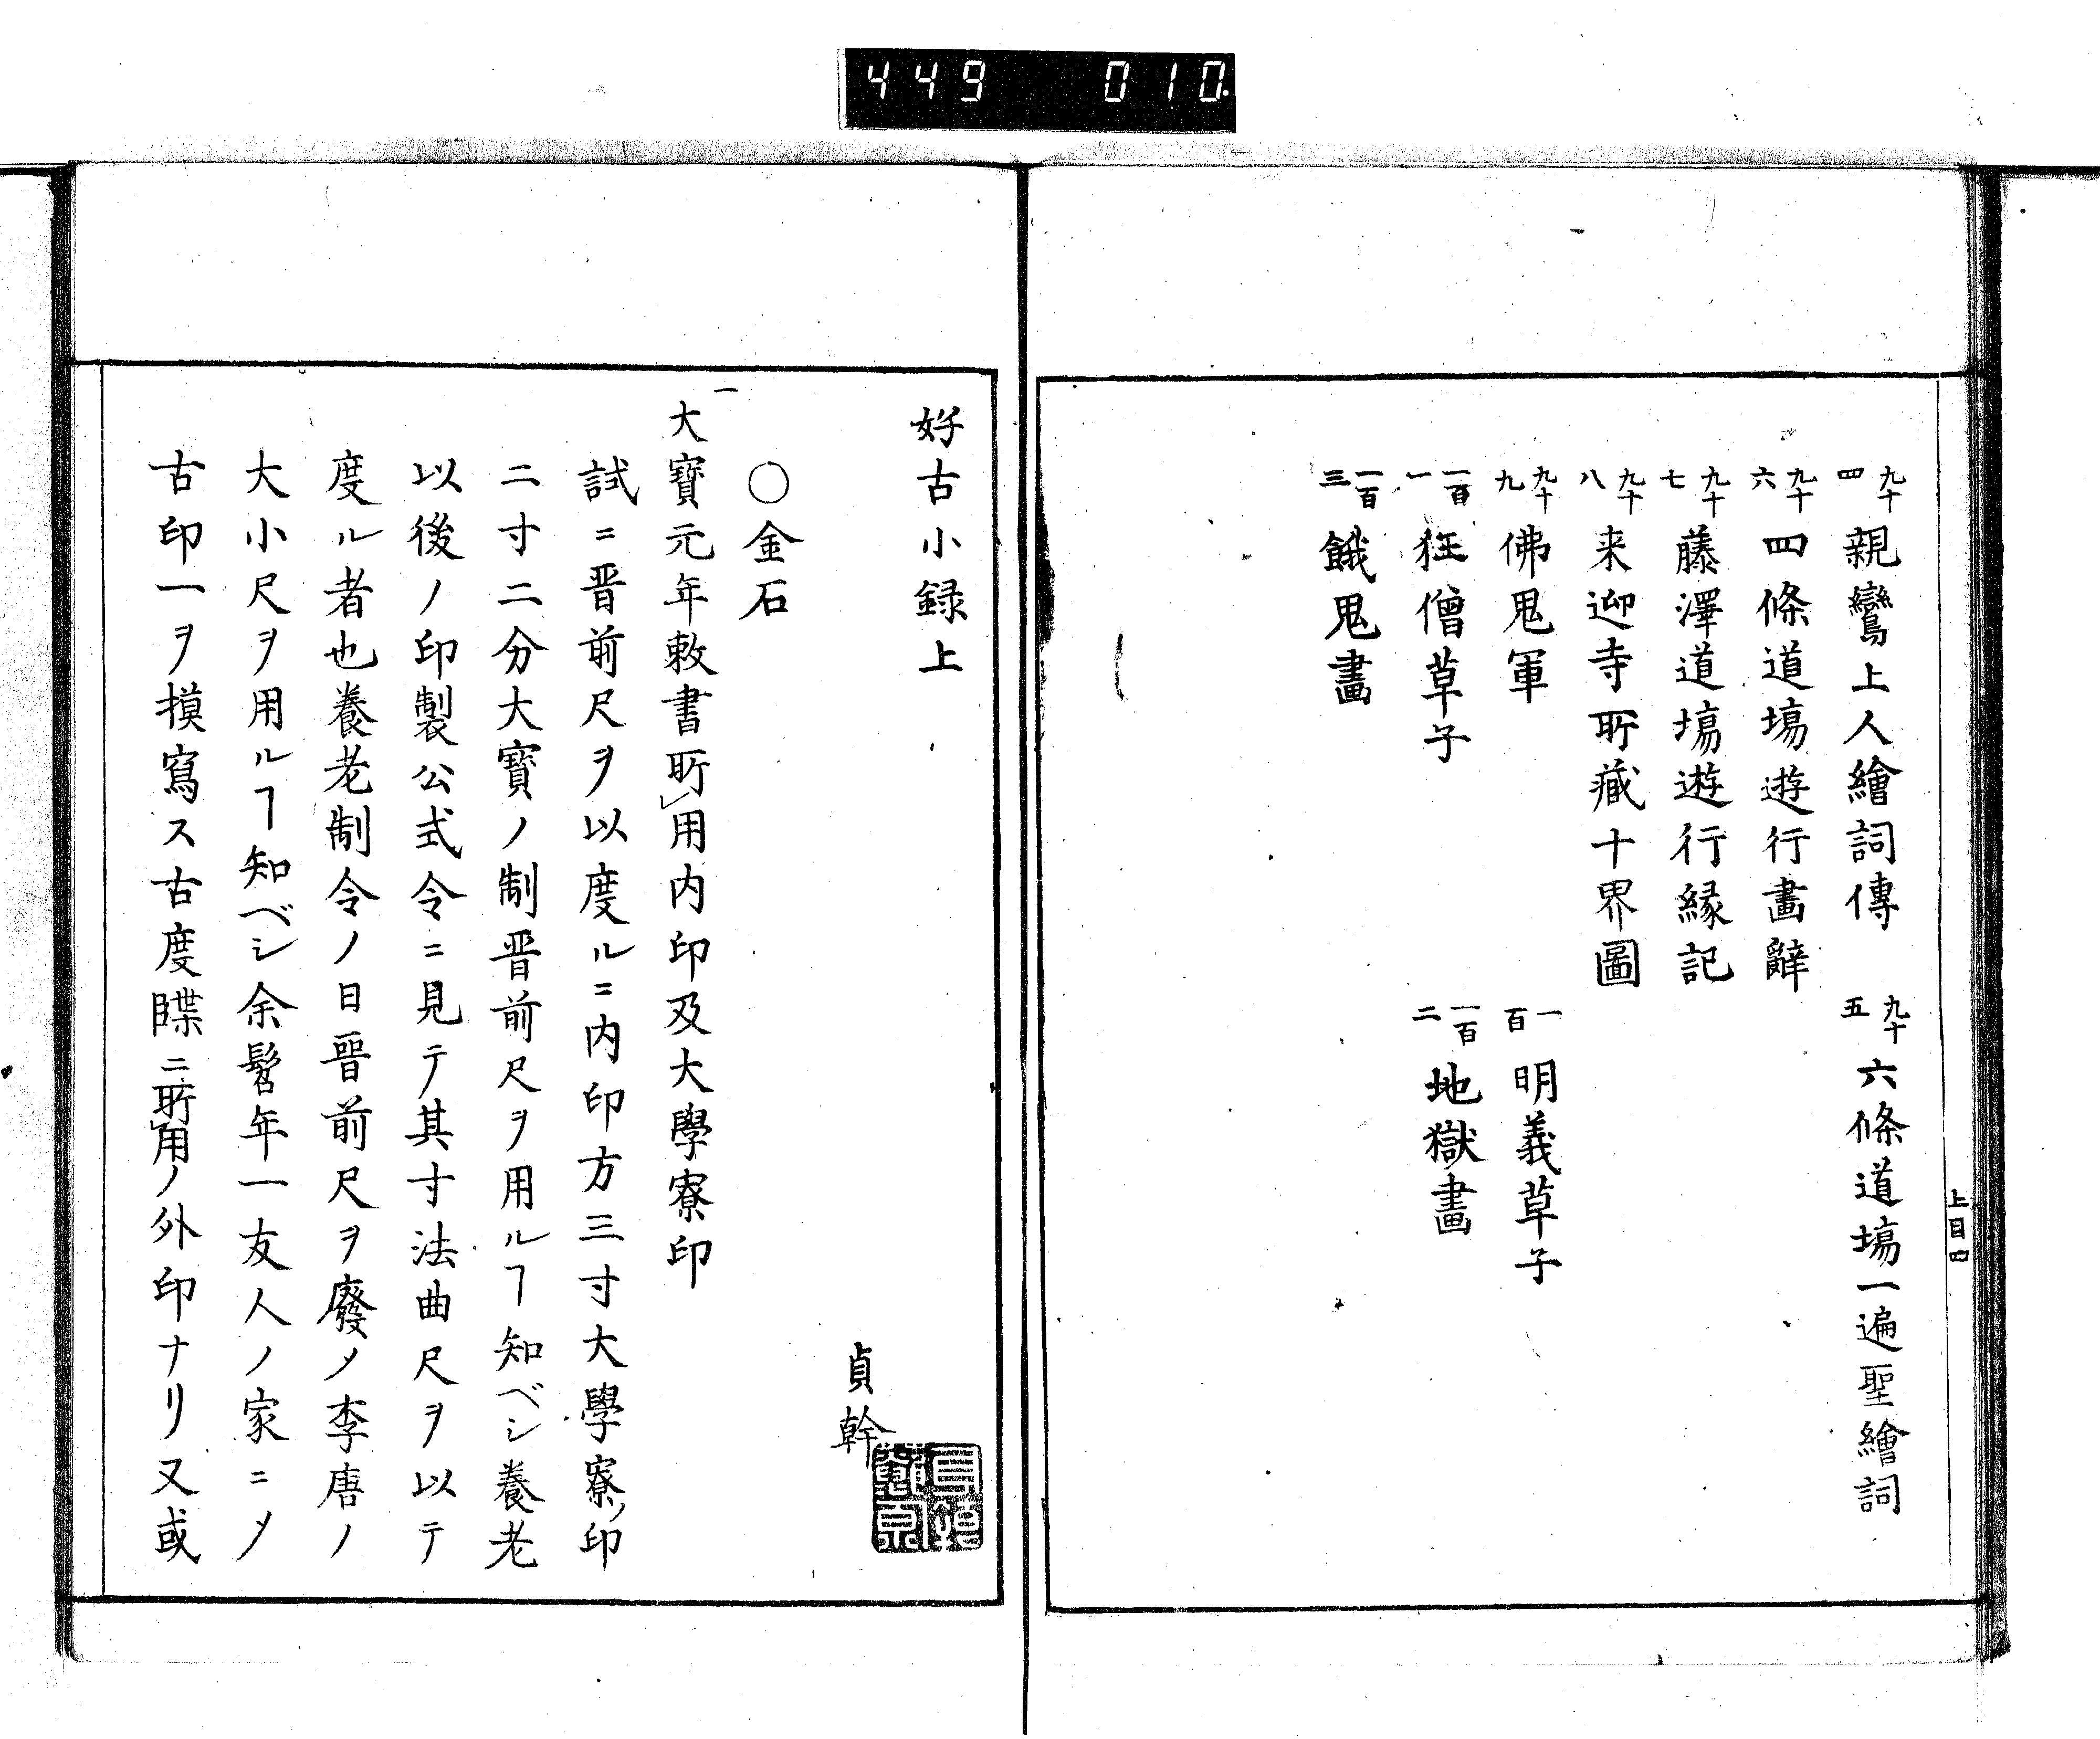 449 010
九十四 親鸞上人繪詞傳 九十五 六條道塲一遍聖繪詞
九十六 四條道塲遊行畫辭
九十七 藤澤道塲遊行縁記
九十八 来迎寺所藏十界圖
九十九 佛鬼軍 一百 明義草子
一百一 狂僧草子 一百二 地獄畫
一百三 餓鬼畫
上目四
好古小録上
貞幹
○金石
一大寶元年敕書所用内印及大學寮印
試ニ晋前尺ヲ以度ルニ内印方三寸大學寮印
二寸二分大寶ノ制晋前尺ヲ用ルヿ知ベシ養老
以後ノ印製公式令ニ見テ其寸法曲尺ヲ以テ
度ル者也養老制令ノ日晋前尺ヲ廢ノ李唐ノ
大小尺ヲ用ルヿ知ベシ余髫年一友人ノ家ニメ
古印一ヲ摸寫ス古度牒ニ所用ノ外印ナリ又或